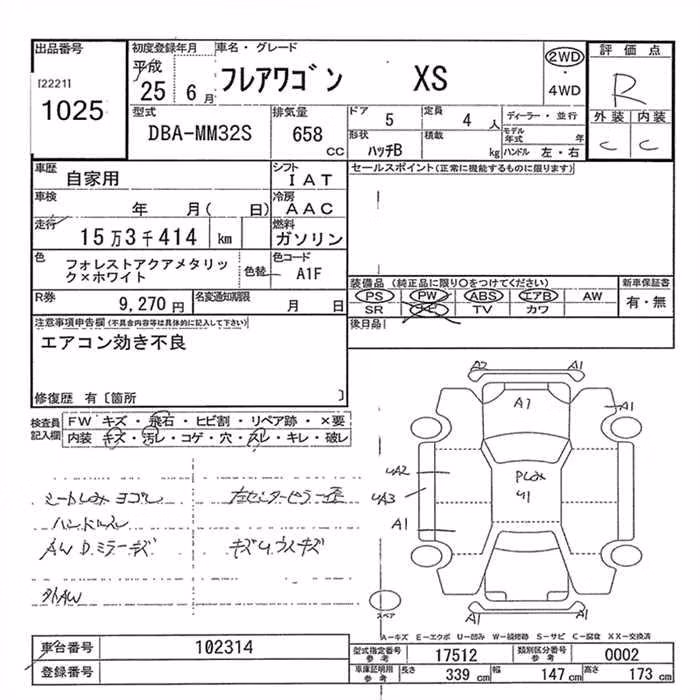 出品番号 初度登録年月 車名・グレード 2WD・4WD 評価点
[2221] 1025 平成 25 6月 フレアワゴン XS R
型式 排気量 ドア 定員 ディーラー・並行 外装 内装
DBA-MM32S 658 CC 5 4人 モデル年式 年 C C
形状 ハッチB 積載 kg ハンドル 左・右
車歴 自家用 シフト IAT セールスポイント(正常に機能するものに限ります)
車検 年 月( 日) 冷房 AAC
走行 15万3千414 km 燃料 ガソリン
色 フォレストアクアメタリック×ホワイト 色替 色コード A1F
装備品 (純正品に限り○をつけてください) 新車保証書
R券 9,270円 名変通知期限 月 日 PS PW ABS エアB AW 有・無
SR ナビ TV カワ
注意事項申告欄(不具合内容等は具体的に記入して下さい) 後日品
エアコン効き不良
修復歴 有[箇所 ]
検査員記入欄 FW キズ・飛石・ヒビ割・リペア跡・×要
内装 キズ・汚レ・コゲ・穴・スレ・キレ・破レ
A2 A1
A1 A1
UA2 PLみ
UA3 U1
A1
A1 A1
スペア
シートしみ ヨゴレ 左センターピラー歪
ハンドルスレ
AW D.ミラーキズ キズUウスキズ
外AW
A-キズ E-エクボ U-凹み W-補修跡 S-サビ C-腐食 XX-交換済
車台番号 102314 型式指定番号参考 17512 類別区分番号参考 0002
登録番号 車庫証明用参考 長さ 339cm 幅 147cm 高さ 173cm